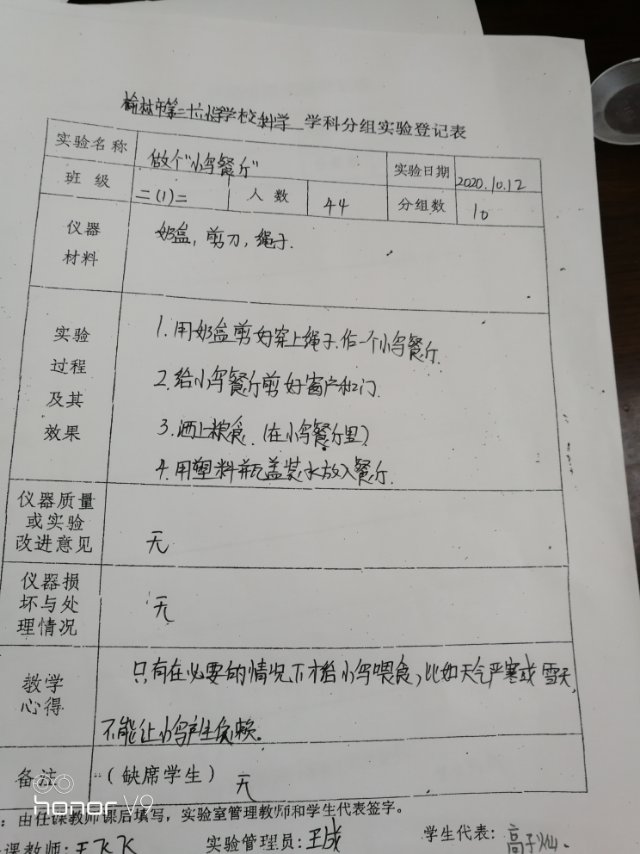 榆林市第二十六小学校 科学 学科分组实验登记表
实验名称 做个"小鸟餐厅" 实验日期 2020.10.12
班级 二(1)二 人数 44 分组数 10
仪器材料 奶盒，剪刀，绳子.
实验过程及其效果
1.用奶盒剪好穿上绳子.作一个小鸟餐厅.
2.给小鸟餐厅剪好窗户和门.
3.洒上粮食.(在小鸟餐厅里)
4.用塑料瓶盖装水放入餐厅.
仪器质量或实验改进意见 无
仪器损坏与处理情况 无
教学心得 只有在必要的情况下才给小鸟喂食，比如天气严寒或雪天，
不能让小鸟产生依赖。
备注 (缺席学生) 无
：由任课教师课后填写，实验室管理教师和学生代表签字。
课教师：王飞飞 实验管理员：王成 学生代表：高子
honor V9